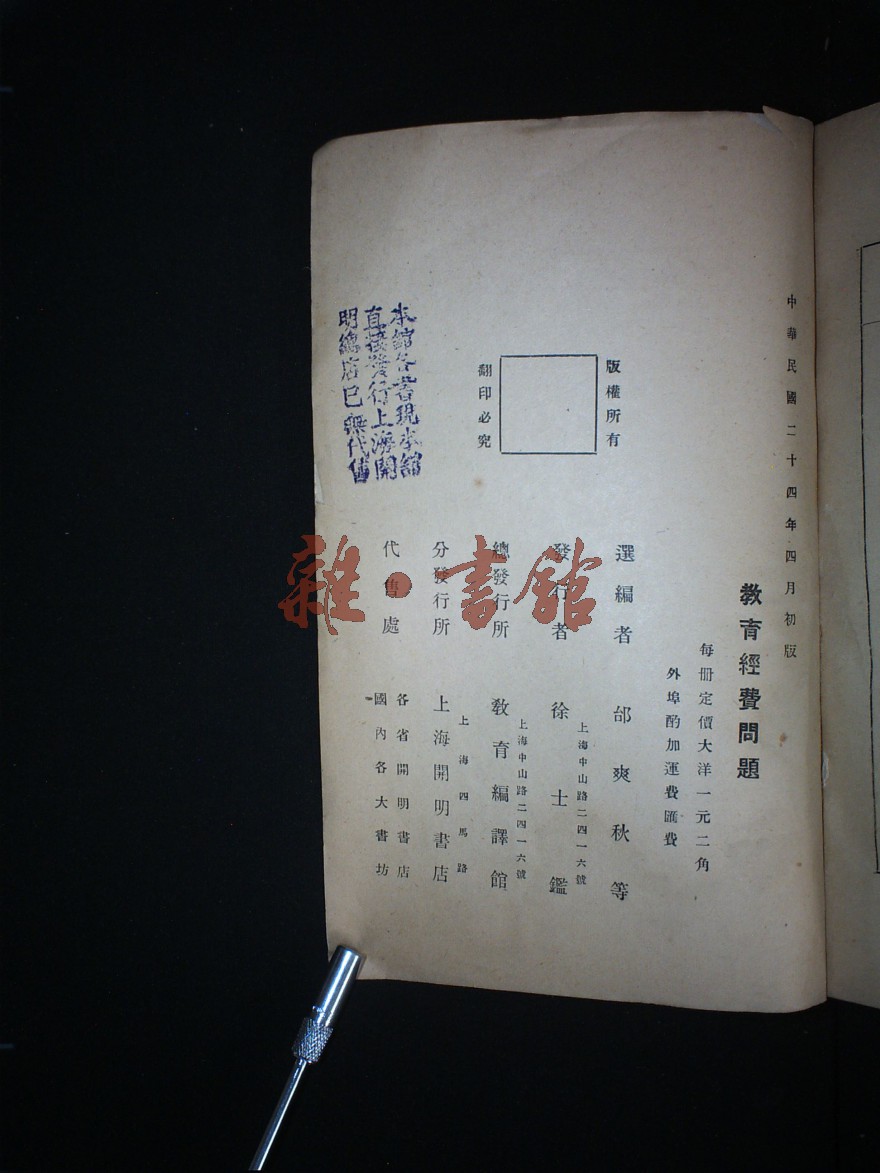 中華民國二十四年四月初版
教育經費問題
每冊定價大洋一元二角
外埠酌加運費匯費
版權所有
翻印必究
選編者 邰爽秋等
上海中山路二四一六號
發行者 徐士鑑
上海中山路二四一六號
總發行所 教育編譯館
上海四馬路
分發行所 上海開明書店
代售處
各省開明書店
國內各大書坊
本館各書現本館
直接發行上海開
明總店已無代售
雜·書館